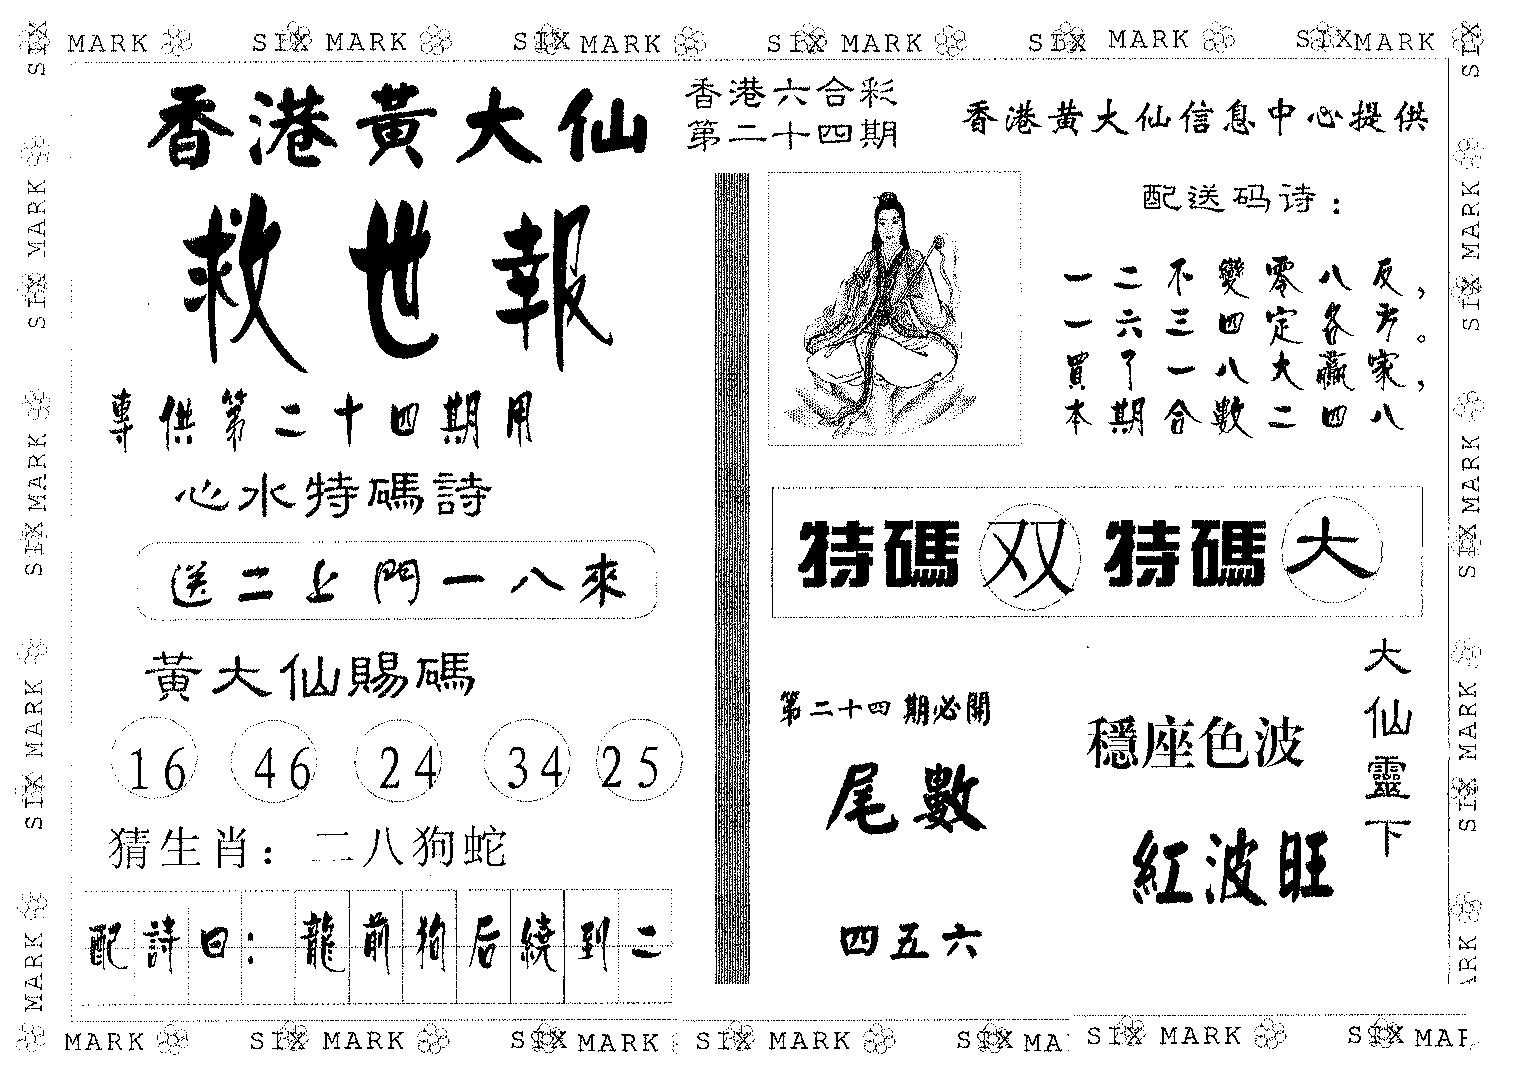 SIX MARK SIX MARK SIX MARK SIX MARK SIX MARK SIX MARK
香港黃大仙
救世報
專供第二十四期用
心水特碼詩
送二上門一八來
黃大仙賜碼
16 46 24 34 25
猜生肖：二八狗蛇
配詩曰：龍前狗后繞到二
香港六合彩
第二十四期
香港黄大仙信息中心提供
配送码诗：
一二不變零八反，
一六三四定各方。
買了一八大贏家，
本期合數二四八
特碼 双 特碼 大
第二十四期必開
尾數
四五六
穩座色波
紅波旺
大仙靈下
SIX MARK SIX MARK SIX MARK SIX MARK
SIX MARK SIX MARK SIX MARK SIX MARK
MARK SIX MARK SIX MARK SIX MARK SIX MA SIX MARK SIX MAR